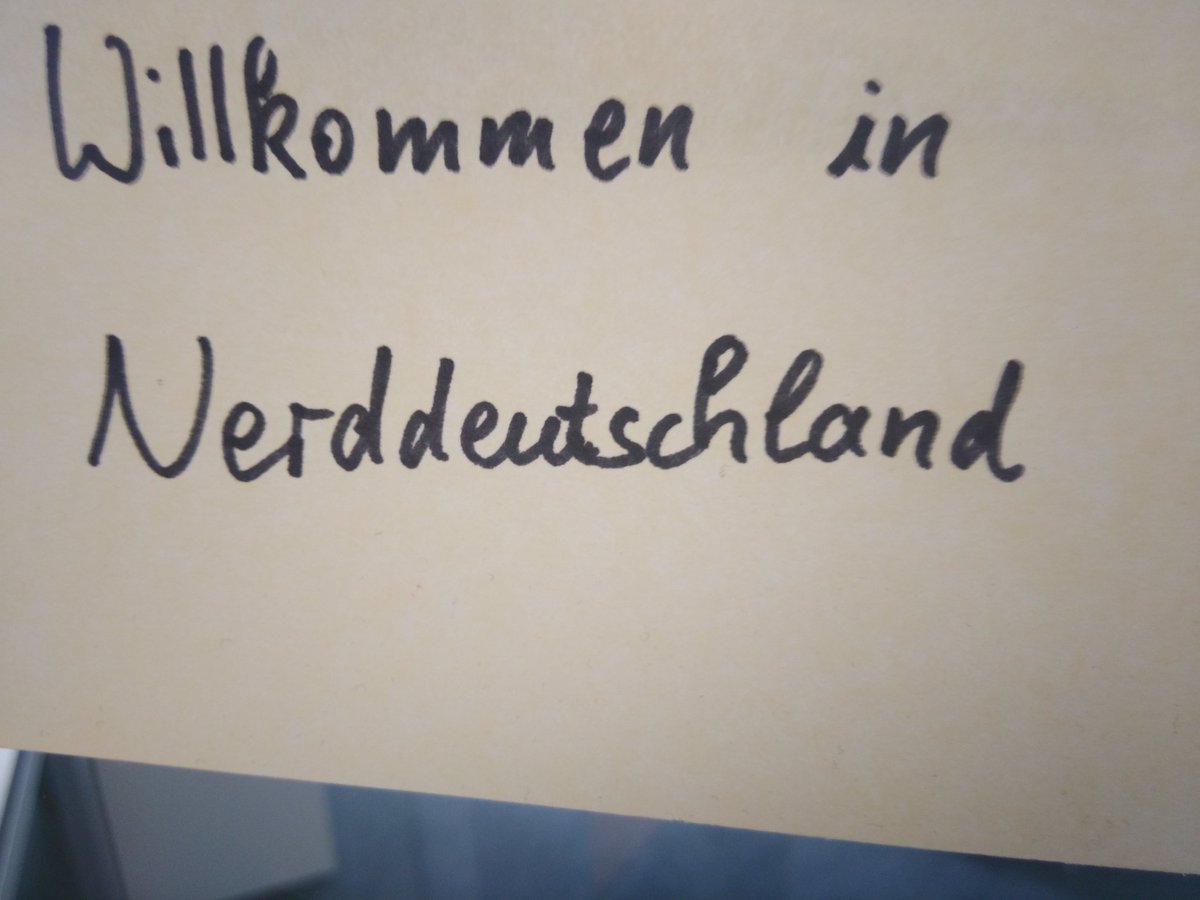 Willkommen in
Nerddeutschland